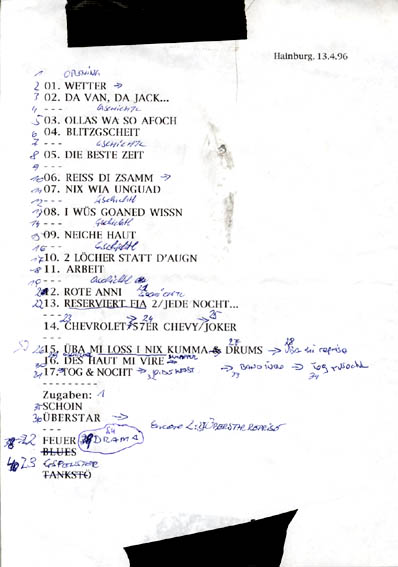 Hainburg. 13.4.96
1 OPENING
2 01. WETTER →
3 02. DA VAN, DA JACK...
4 ---
5 03. OLLAS WA SO AFOCH
6 04. BLITZGSCHEIT
7 ---
8 05. DIE BESTE ZEIT
9 ---
10 06. REISS DI ZSAMM →
11 07. NIX WIA UNGUAD
12 ---
13 08. I WÜS GOANED WISSN
14 ---
15 09. NEICHE HAUT
16 ---
17 10. 2 LÖCHER STATT D'AUGN
18 11. ARBEIT
19 ---
20 12. ROTE ANNI
22 13. RESERVIERT FIA 2/JEDE NOCHT...
--- 23 → 24 25
14. CHEVROLET/57ER CHEVY/JOKER
---
26 15. ÜBA MI LOSS I NIX KUMMA & 27 DRUMS → 28 Üba mi reprise
16. DES HAUT MI VIRE
31 17. TOG & NOCHT → 32 → 33 → Tog & Nocht 34
---------
Zugaben: 1
35 SCHOIN
36 ÜBERSTAR → Encore 2: ÜBERSTAR REPRISE
---
38 22 FEUER 39 DRAMA
BLUES
40 23 GSPENSTER
TANKSTÖ